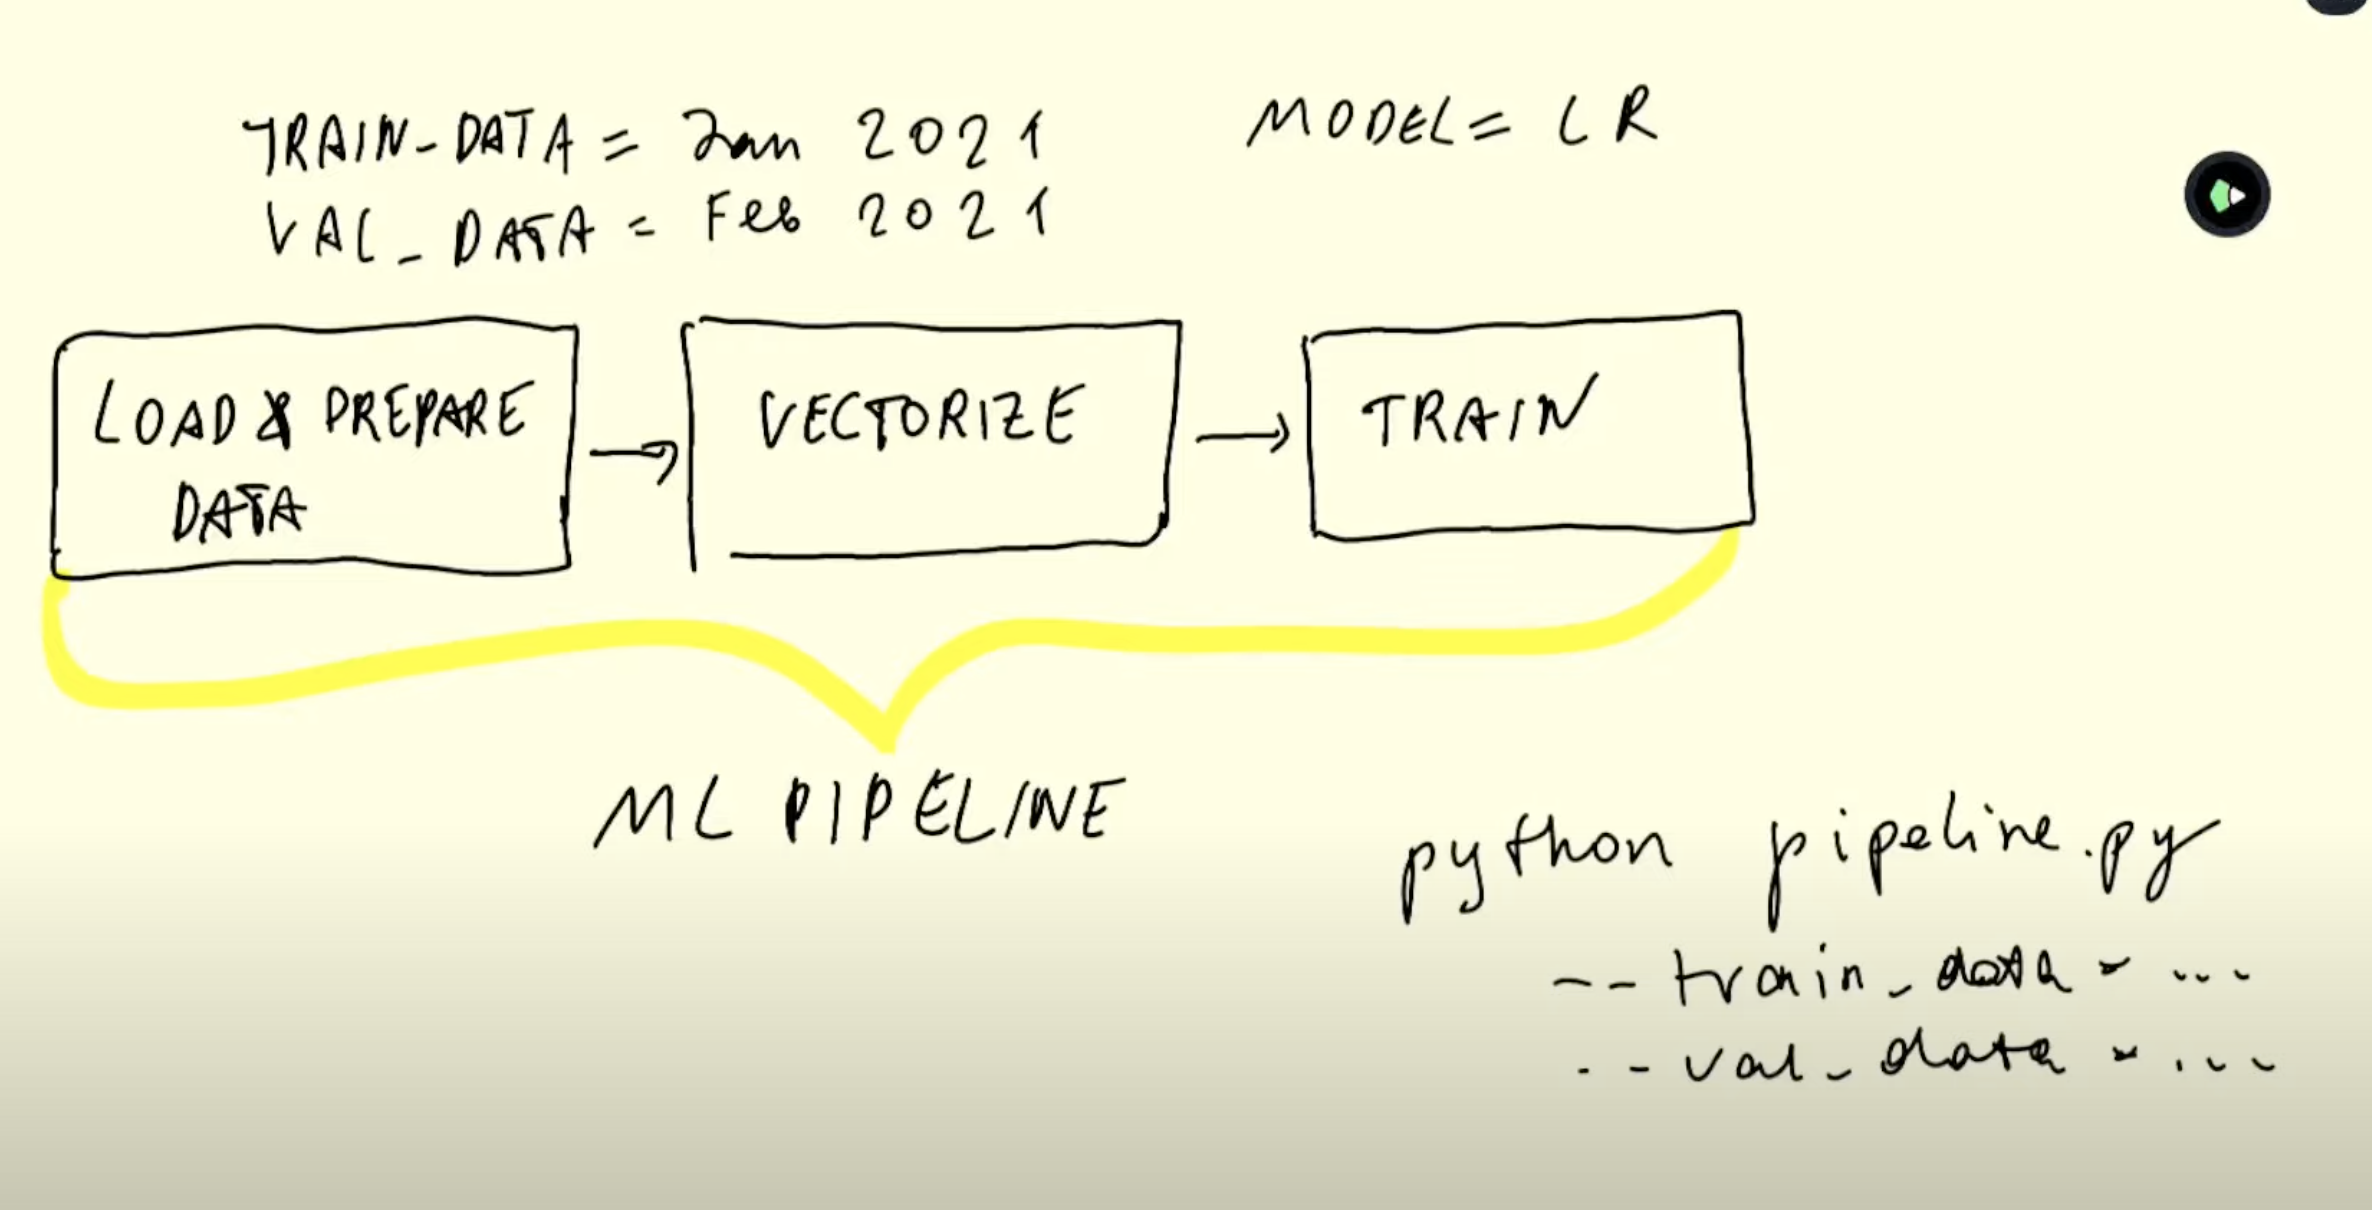 TRAIN-DATA = Jan 2021
MODEL = LR
VAL_DATA = Feb 2021
LOAD & PREPARE
DATA
VECTORIZE
TRAIN
ML PIPELINE
python pipeline.py
--train_data = ...
--val_data = ...